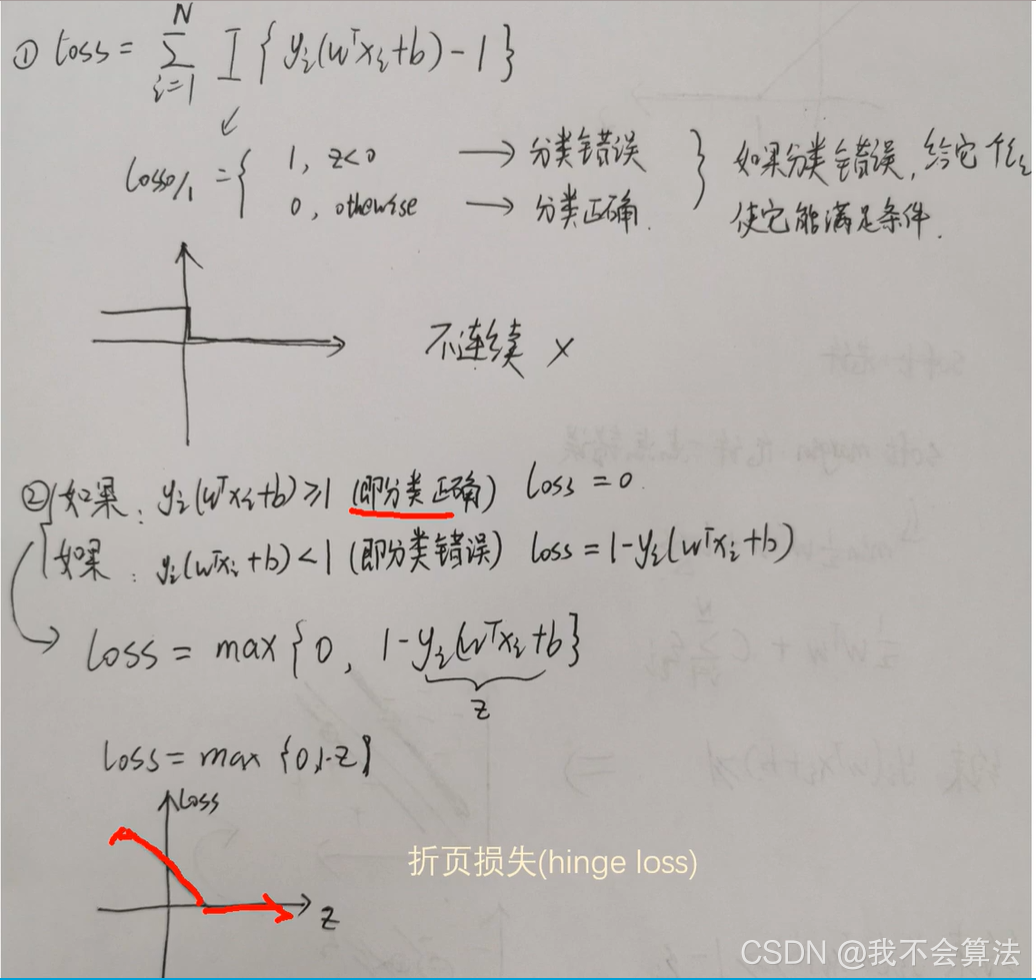 ① Loss = ∑_{i=1}^{N} I{y_i(w^Tx_i+b)-1}
Loss0/1 = { 1, z<0 → 分类错误
0, othewise → 分类正确.
} 如果分类错误, 给它个ξ_i
使它能满足条件.
不连续 ×
② { 如果: y_i(w^Tx_i+b)≥1 (即分类正确) Loss=0.
如果: y_i(w^Tx_i+b)<1 (即分类错误) loss=1-y_i(w^Tx_i+b)
→ Loss = max{0, 1-y_i(w^Tx_i+b}
z
Loss = max {0,1-z}
Loss
z
折页损失(hinge loss)
CSDN @我不会算法